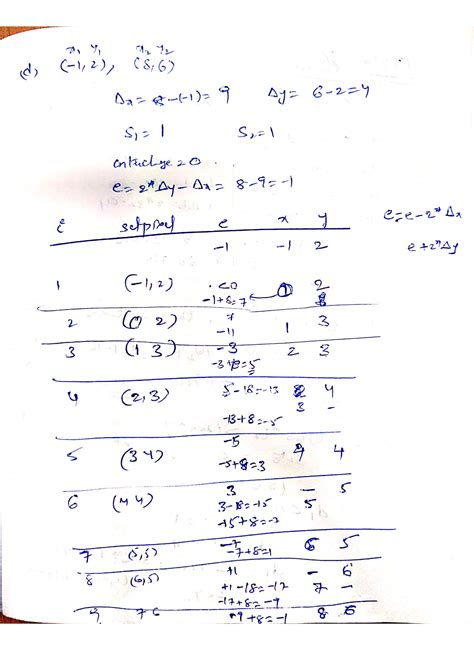 x₁ y₁ x₂ y₂
(d) (-1,2), (8,6)
Δx = 8-(-1) = 9 Δy = 6-2=4
S₁ = 1 S₂=1
= 0
e = 2*Δy - Δx = 8-9=-1
i setpixel e x y e=e-2*Δx
-1 -1 2 e+2*Δy
1 (-1,2) <0 0 2
-1+8=7
2 (0 2) 7 1 3
-11
3 (1 3) -3 2 3
-3+8=5
4 (2,3) 5-18=-13 4
3 -
-13+8=-5
5 (3 4) -5 4 4
-5+8=3
6 (4 4) 3 - 5
3-18=-15 5
-15+8=-7
7 (5,5) -7 6 5
-7+8=1
8 (6,5) +1 - 6
+1-18=-17 7 -
-17+8=-9
9 7 6 -9+8=-1 8 6